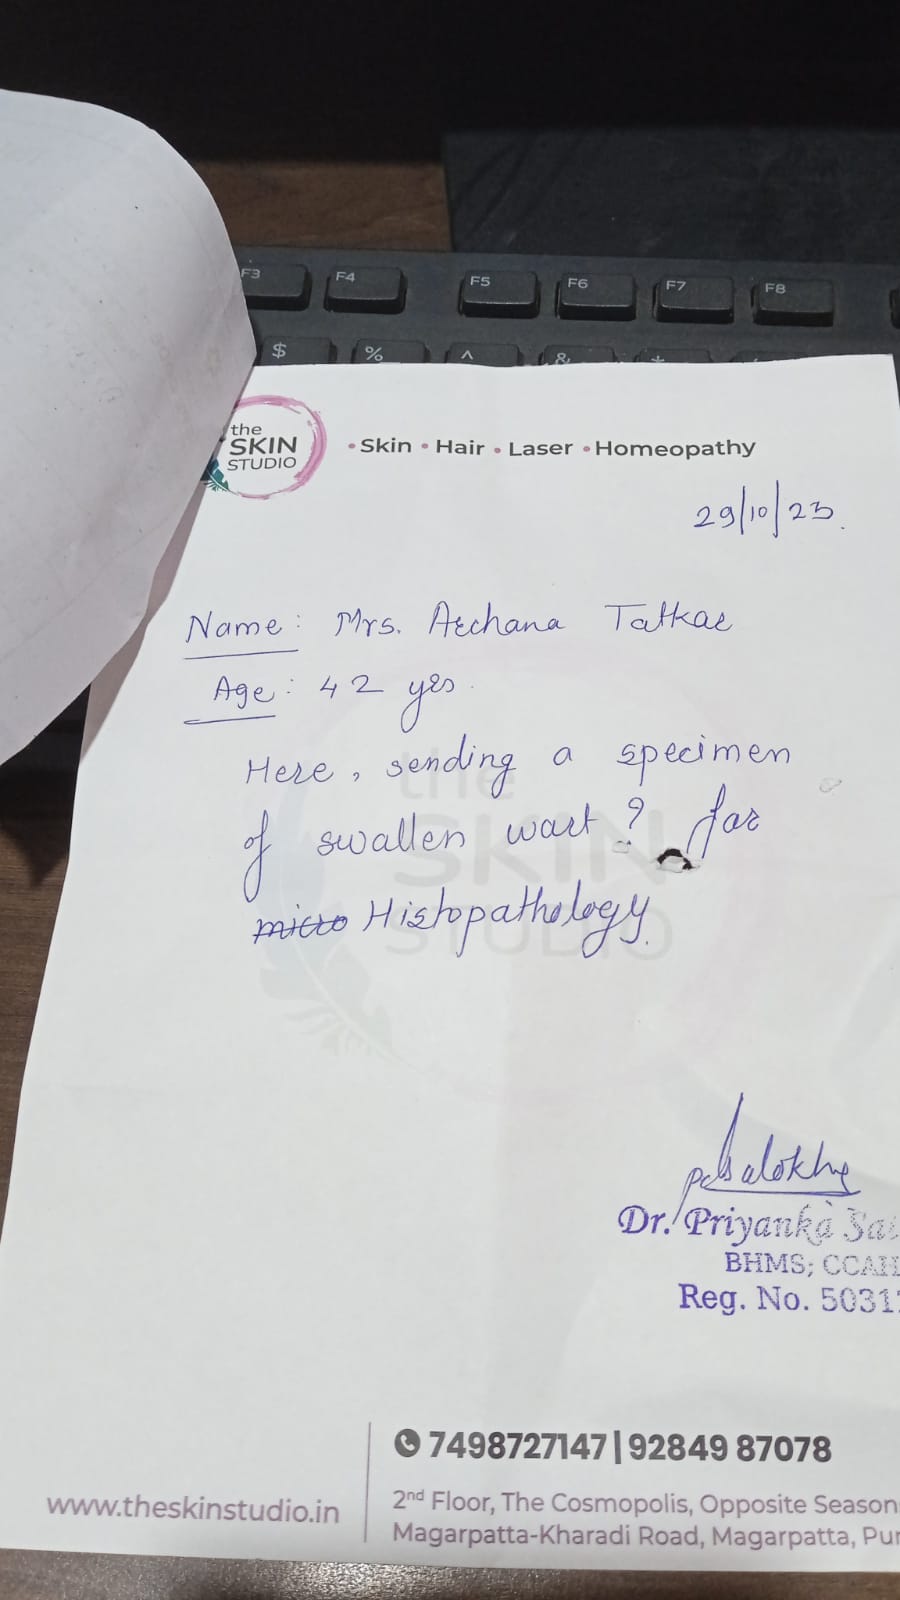 F3 F4 F5 F6 F7 F8
$ % ^ & *
the
SKIN
STUDIO
• Skin • Hair • Laser • Homeopathy
29/10/23.
Name: Mrs. Archana Tatkar
Age: 42 yrs.
Here, sending a specimen
of swallen wart? for
micro Histopathology.
the
SKIN
STUDIO
Dr. Priyanka Sal
BHMS; CCAH
Reg. No. 5031
7498727147 | 92849 87078
www.theskinstudio.in
2nd Floor, The Cosmopolis, Opposite Season
Magarpatta-Kharadi Road, Magarpatta, Pun